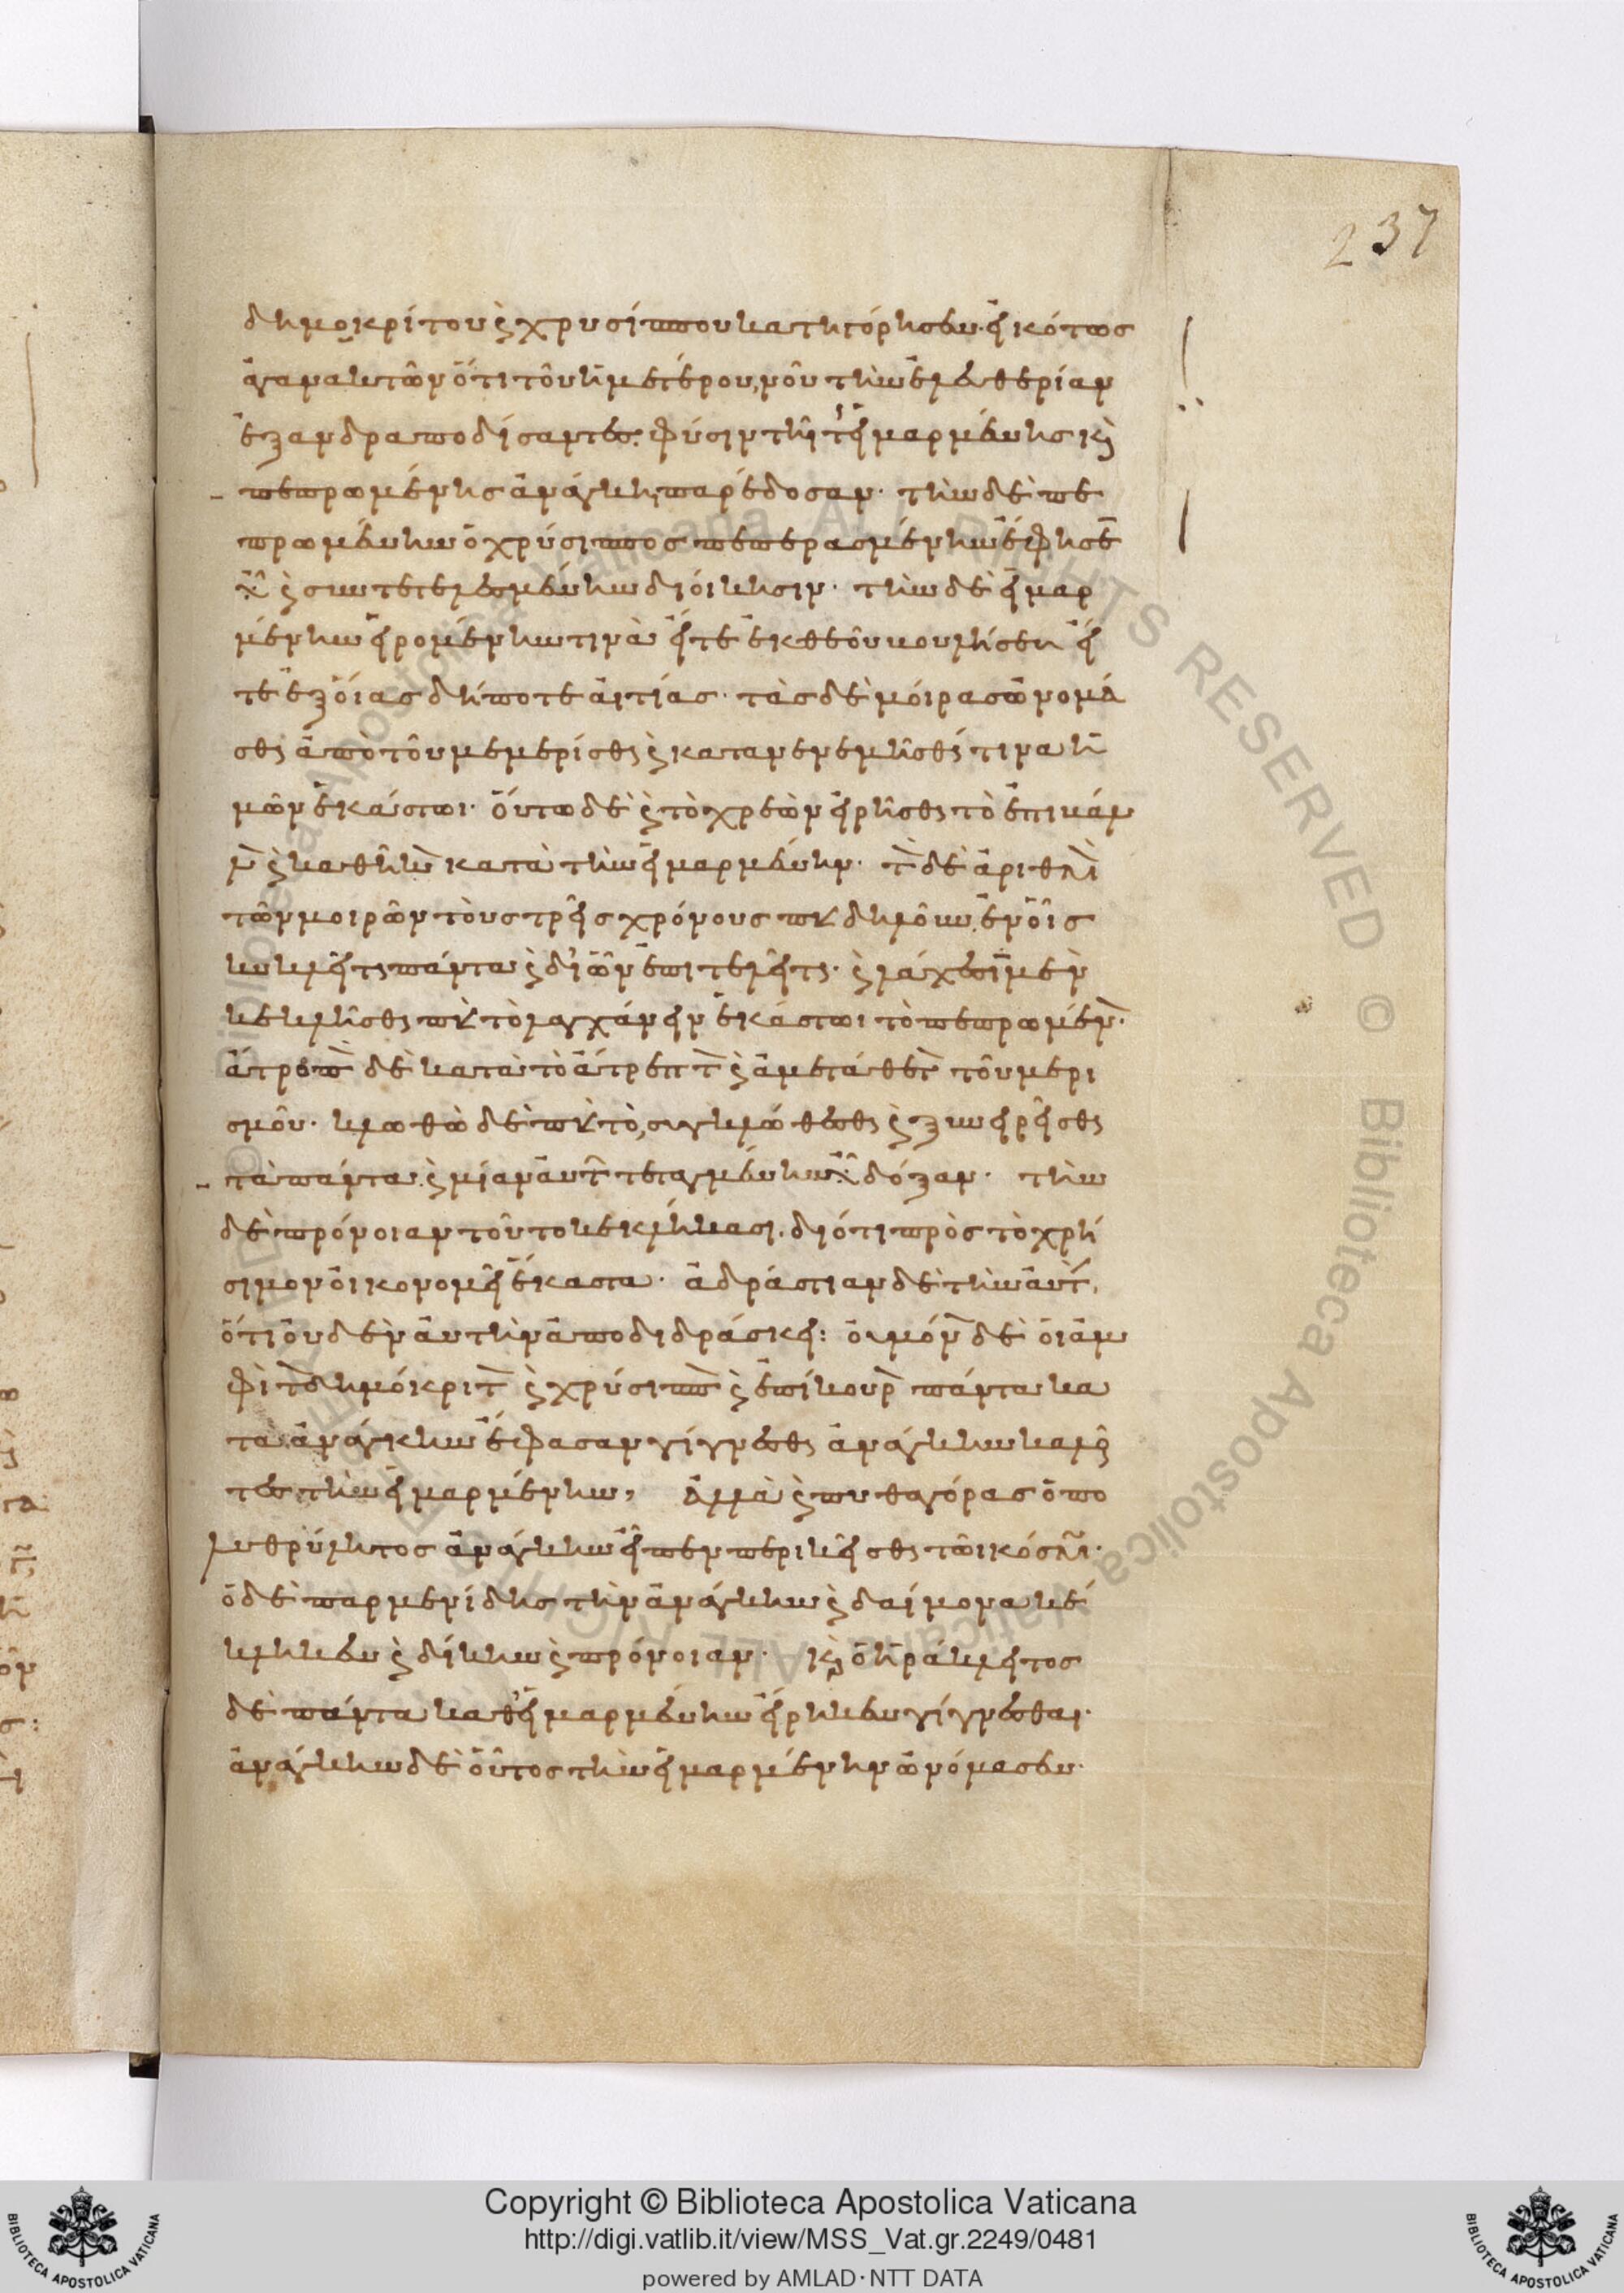 237
δημοκρίτου καὶ χρυσίππου κατηγόρησεν· εἰκότως
ἀγανακτῶν ὅτι τοῦ ἡμετέρου νοῦ τὴν ἐλευθερίαν
ἐξανδραποδίσαντες. φύσιν τῇ τῆς εἱμαρμένης καὶ
πεπρωμένης ἀνάγκῃ παρέδοσαν· τὴν δὲ πε
πρωμένην ὁ χρύσιππος πεπερασμένην ἔφησεν
εἶναι καὶ συντετελεσμένην διοίκησιν· τὴν δὲ εἱμαρ
μένην εἰρομένην τινὰ εἴτε ἐκ θεοῦ βουλήσεως εἴ
τε ἐξ οἵας δήποτε αἰτίας· τὰς δὲ μοίρας ὠνομά
σθαι ἀπὸ τοῦ μεμερίσθαι καὶ κατανενεμῆσθαί τινα ἡ
μῶν ἑκάστωι· οὕτω δὲ καὶ τὸ χρεὼν εἰρῆσθαι τὸ
καὶ καθῆκον κατὰ τὴν εἱμαρμένην· τὸν δὲ ἀριθμὸν
τῶν μοιρῶν τοὺς τρεῖς χρόνους παραδηλοῦν, ἐν οἷς
κυκλεῖται πάντα καὶ δι' ὧν ἐπιτελεῖται· καὶ λάχεσιν μὲν
κεκλῆσθαι παρὰ τὸ λαγχάνειν ἑκάστωι τὸ πεπρωμένον·
ἄτροπον δὲ κατὰ τὸ ἄτρεπτον καὶ ἀμετάθετον τοῦ μερι
σμοῦ· κλωθὼ δὲ παρὰ τὸ, συγκλώθεσθαι καὶ ξυνείρεσθαι
τὰ πάντα. καὶ μίαν αὐτῶν τεταγμένην εἶναι δόξαν· τὴν
δὲ πρόνοιαν τοῦτο κεκλήκασι. διότι πρὸς τὸ χρή
σιμον οἰκονομεῖ ἕκαστα· ἀδράστιαν δὲ τὴν αὐτὴν,
ὅτι οὐδὲν αὐτὴν ἀποδιδράσκει: οὐ μόνον δὲ οἱ ἀμ
φὶ τὸν δημόκριτον καὶ χρύσιππον καὶ ἐπίκουρον πάντα κα
τὰ ἀνάγκην ἔφασαν γίγνεσθαι ἀνάγκην καλοῦν
τες τὴν εἱμαρμένην, Ἀλλὰ καὶ πυθαγόρας ὁ πο
λυθρύλητος ἀνάγκην εἶπεν περικεῖσθαι τῶι κόσμωι·
ὁ δὲ παρμενίδης τὴν ἀνάγκην καὶ δαίμονα κέ
κληκεν καὶ δίκην καὶ πρόνοιαν· καὶ ὁ ἡράκλειτος
δὲ πάντα καθ' εἱμαρμένην εἴρηκεν γίγνεσθαι·
ἀνάγκην δὲ οὗτος τὴν εἱμαρμένην ὠνόμασεν·
Copyright © Biblioteca Apostolica Vaticana
http://digi.vatlib.it/view/MSS_Vat.gr.2249/0481
powered by AMLAD·NTT DATA